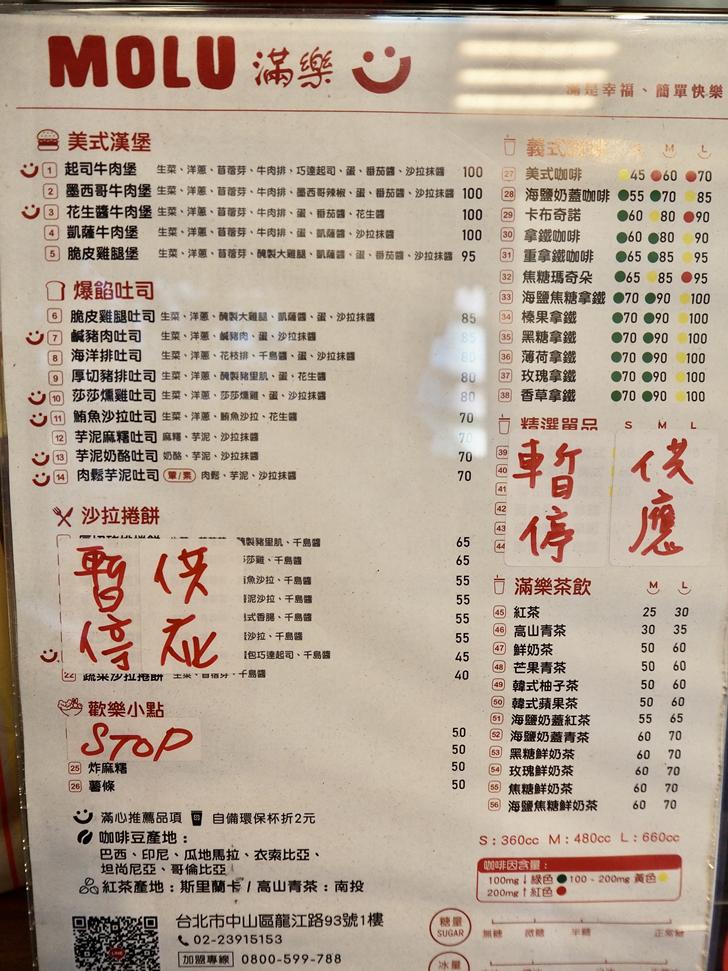 MOLU 滿樂
滿是幸福、簡單快樂
美式漢堡
1 起司牛肉堡 生菜、洋蔥、苜蓿芽、牛肉排、巧達起司、蛋、番茄醬、沙拉抹醬 100
2 墨西哥牛肉堡 生菜、洋蔥、苜蓿芽、牛肉排、墨西哥辣椒、蛋、番茄醬、沙拉抹醬 100
3 花生醬牛肉堡 生菜、洋蔥、苜蓿芽、牛肉排、蛋、番茄醬、花生醬 100
4 凱薩牛肉堡 生菜、洋蔥、苜蓿芽、牛肉排、蛋、凱薩醬、沙拉抹醬 100
5 脆皮雞腿堡 生菜、洋蔥、苜蓿芽、醃製大雞腿、凱薩醬、蛋、番茄醬、沙拉抹醬 95
爆餡吐司
6 脆皮雞腿吐司 生菜、洋蔥、醃製大雞腿、凱薩醬、蛋、沙拉抹醬 85
7 鹹豬肉吐司 生菜、洋蔥、鹹豬肉、蛋、沙拉抹醬
8 海洋排吐司 生菜、洋蔥、花枝排、千島醬、蛋、沙拉抹醬
9 厚切豬排吐司 生菜、洋蔥、醃製豬里肌、蛋、花生醬 80
10 莎莎燻雞吐司 生菜、洋蔥、莎莎燻雞、蛋、沙拉抹醬 80
11 鮪魚沙拉吐司 生菜、洋蔥、鮪魚沙拉、花生醬 70
12 芋泥麻糬吐司 麻糬、芋泥、沙拉抹醬 70
13 芋泥奶酪吐司 奶酪、芋泥、沙拉抹醬 70
14 肉鬆芋泥吐司 葷/素 肉鬆、芋泥、沙拉抹醬 70
沙拉捲餅
暫停 供应
製豬里肌、千島醬 65
莎雞、千島醬 65
魚沙拉、千島醬 55
泥沙拉、千島醬 55
式香腸、千島醬 55
沙拉、千島醬 55
包巧達起司、千島醬 45
22 蔬菜沙拉捲餅 生菜、苜蓿芽、千島醬 40
歡樂小點
STOP
50
50
25 炸麻糬
26 薯條 50
滿心推薦品項 自備環保杯折2元
咖啡豆產地：
巴西、印尼、瓜地馬拉、衣索比亞、
坦尚尼亞、哥倫比亞
紅茶產地：斯里蘭卡 / 高山青茶：南投
台北市中山區龍江路93號1樓
02-23915153
加盟專線 0800-599-788
LINE
義式咖啡 S M L
27 美式咖啡 45 60 70
28 海鹽奶蓋咖啡 55 70 85
29 卡布奇諾 60 80 90
30 拿鐵咖啡 60 80 90
31 重拿鐵咖啡 65 85 95
32 焦糖瑪奇朵 65 85 95
33 海鹽焦糖拿鐵 70 90 100
34 榛果拿鐵 70 90 100
35 黑糖拿鐵 70 90 100
36 薄荷拿鐵 70 90 100
37 玫瑰拿鐵 70 90 100
38 香草拿鐵 70 90 100
精選單品 S M L
39
40
41
42
43
44
暫停 供應
滿樂茶飲 M L
45 紅茶 25 30
46 高山青茶 30 35
47 鮮奶茶 50 60
48 芒果青茶 50 60
49 韓式柚子茶 50 60
50 韓式蘋果茶 50 60
51 海鹽奶蓋紅茶 55 65
52 海鹽奶蓋青茶 60 70
53 黑糖鮮奶茶 60 70
54 玫瑰鮮奶茶 60 70
55 焦糖鮮奶茶 60 70
56 海鹽焦糖鮮奶茶 60 70
S：360cc M：480cc L：660cc
咖啡因含量：
100mg↓綠色 100-200mg 黃色
200mg↑紅色
糖量 SUGAR 無糖 微糖 半糖 正常糖
冰量